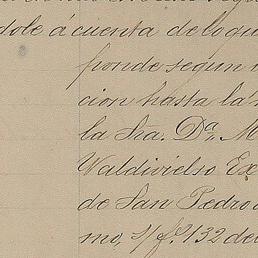 dole á cuenta de lo qu
ponde segun
cion hasta la
la Sra. Da. M
Waldivielso Ex
de San Pedro
mo, s/f.s 132 del